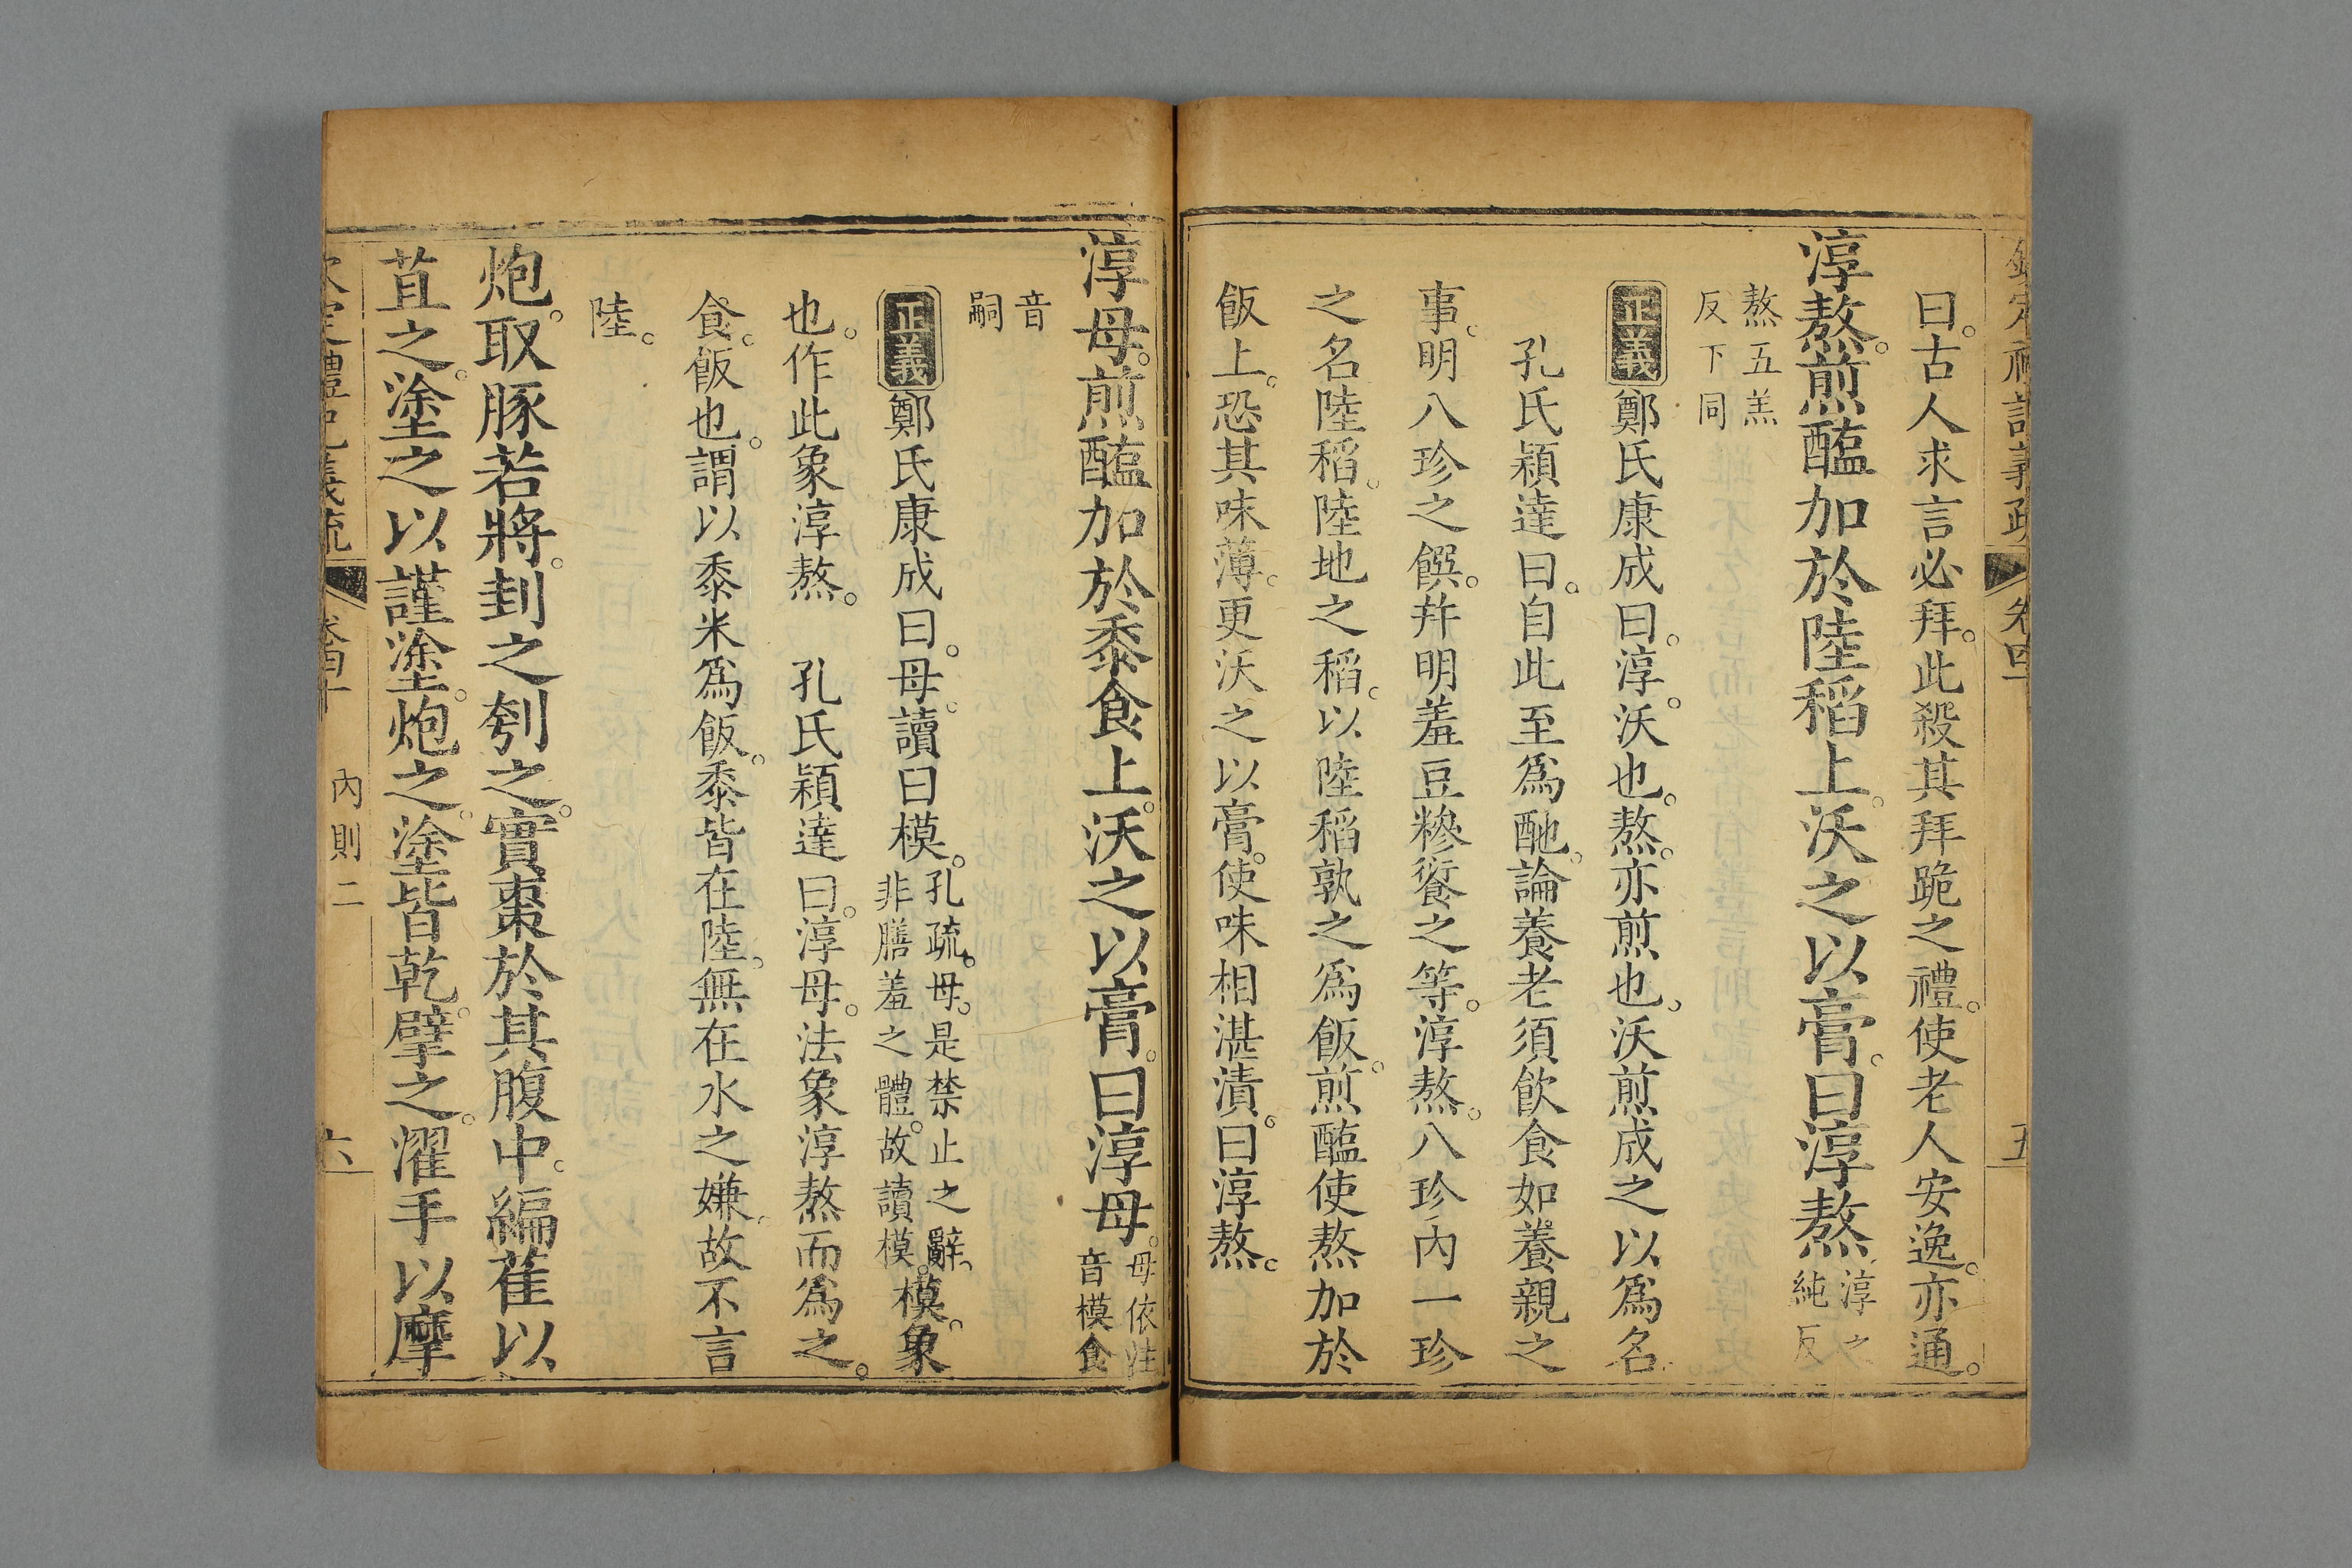 曰。古人求言必拜。此殺其拜跪之禮。使老人安逸。亦通。
淳熬。煎醢加於陸稻上。沃之以膏。曰淳熬。淳之
純反
熬五羔
反下同
正義鄭氏康成曰。淳。沃也。熬。亦煎也。沃煎成之以爲名。
孔氏穎達曰。自此至爲酏。論養老須飲食如養親之
事。明八珍之饌。幷明羞豆糝餈之等。淳熬。八珍內一珍
之名陸稻。陸地之稻。以陸稻孰之爲飯。煎醢使熬加於
飯上。恐其味薄。更沃之以膏。使味相湛漬。曰淳熬。
淳母。煎醢加於黍食上。沃之以膏。曰淳母。母依注
音模食
音
嗣
正義鄭氏康成曰。母。讀曰模。孔疏。母。是禁止之辭。
非膳羞之體。故讀模。模。象
也。作此象淳熬。 孔氏穎達曰。淳母。法象淳熬而爲之。
食。飯也。謂以黍米爲飯。黍皆在陸。無在水之嫌。故不言
陸。
炮。取豚若將。刲之刳之。實棗於其腹中。編萑以
苴之。塗之以謹塗。炮之。塗皆乾。擘之。濯手以摩
內則二
六